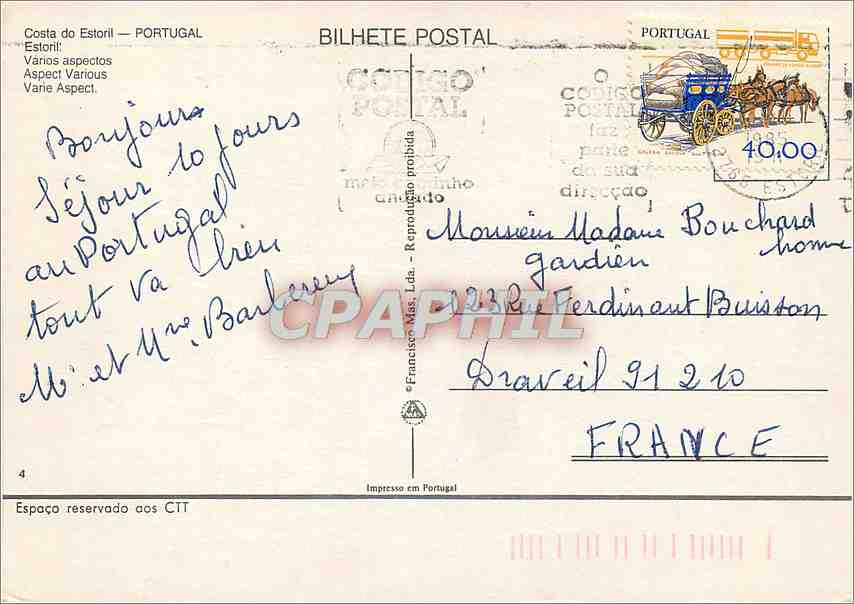 Costa do Estoril — PORTUGAL
Estoril:
Vários aspectos
Aspect Various
Varie Aspect.
BILHETE POSTAL
PORTUGAL
40,00
CÓDIGO
POSTAL
meio caminho
andado
O
CODIGO
POSTAL
faz
parte
da sua
direcção
1985
2765 ESTORIL
Bonjours
Séjour 10 jours
au Portugal
tout va bien
Mr et Mme Barberey
Monsieur Madame Bouchard
homme
gardien
123 Rue Ferdinant Buisson
Draveil 91 210
FRANCE
© Francisco Mas, Lda. - Reprodução proibida
CPAPHIL
4
Impresso em Portugal
Espaço reservado aos CTT